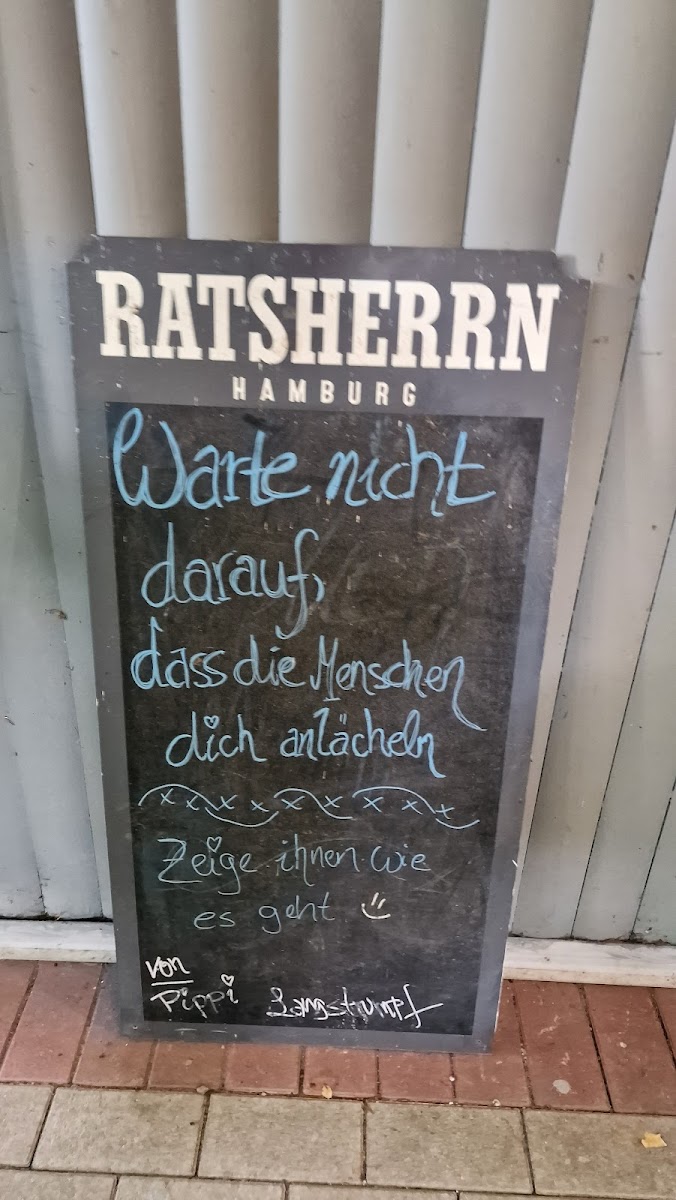 RATSHERRN
HAMBURG
Warte nicht
darauf,
dass die Menschen
dich anlächeln
Zeige ihnen wie
es geht
von
Pippi Langstrumpf